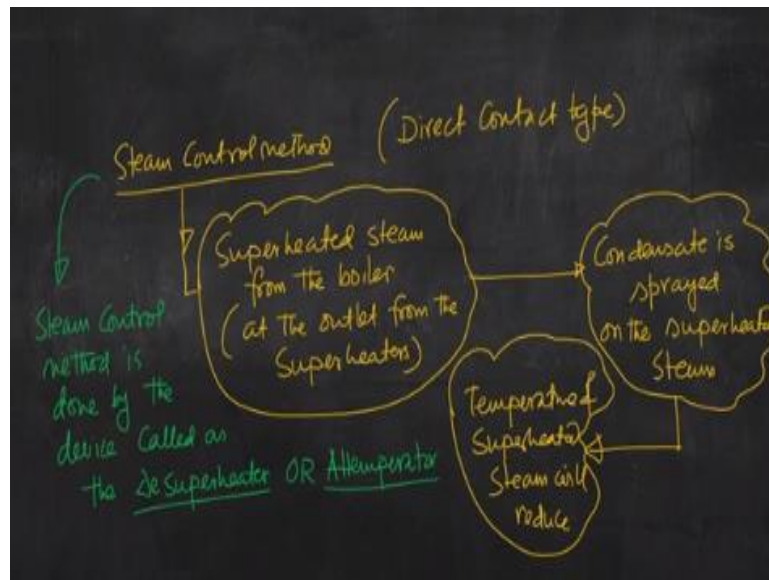 Steam Control method (Direct Contact type)
Superheated steam
from the boiler
(at the outlet from the
Superheaters)
Condensate is
sprayed
on the superheated
Steam
Temperature of
Superheated
Steam will
reduce
Steam Control
method is
done by the
device Called as
the Desuperheater OR Attemperator